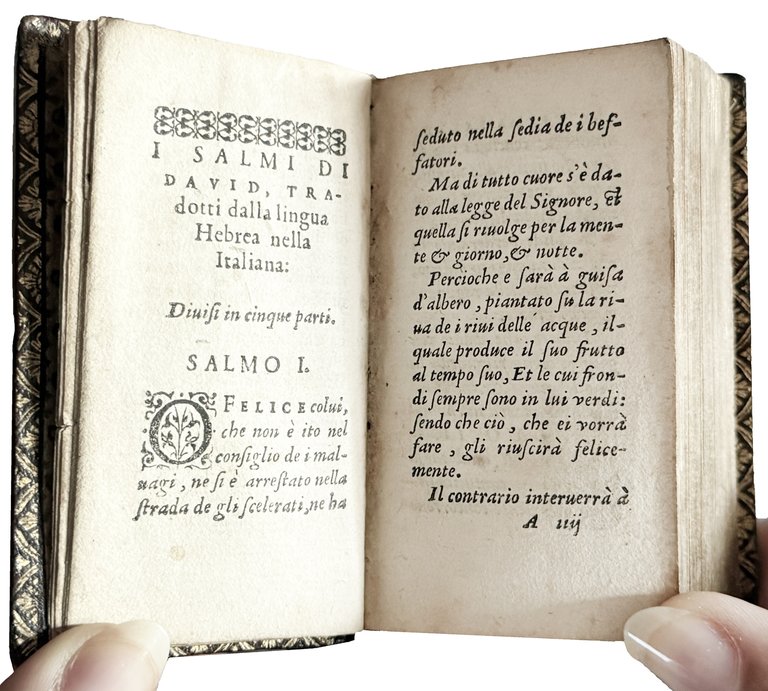 I SALMI DI
DAVID, TRA-
dotti dalla lingua
Hebrea nella
Italiana:
Diuiſi in cinque parti.
SALMO I.
O FELICE colui,
che non è ito nel
conſiglio de i mal-
uagi, ne ſi è arreſtato nella
ſtrada de gli ſcelerati, ne ha
ſeduto nella ſedia de i bef-
fatori.
Ma di tutto cuore s'è da-
to alla legge del Signore, et
quella ſi riuolge per la men-
te & giorno, & notte.
Percioche e ſarà à guiſa
d'albero, piantato ſu la ri-
ua de i riui delle acque, il-
quale produce il ſuo frutto
al tempo ſuo, Et le cui fron-
di ſempre ſono in lui verdi:
ſendo che ciò, che ei vorrà
fare, gli riuſcirà felice-
mente.
Il contrario interuerrà à
A iiij